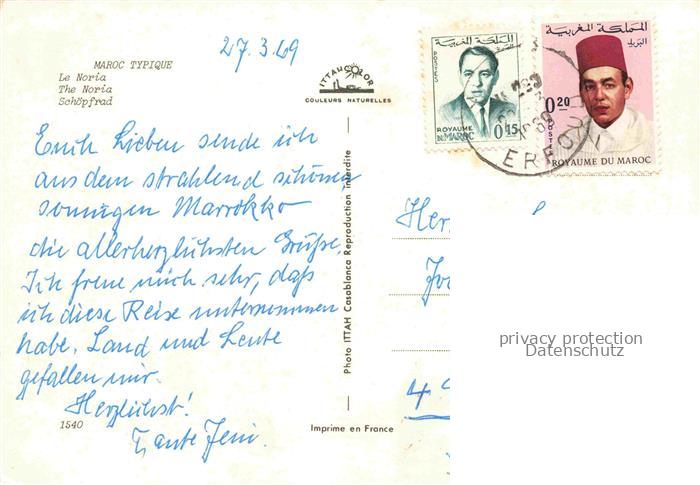 27.3.69
MAROC TYPIQUE
Le Noria
The Noria
Schöpfrad
ITTAHCOLOR
COULEURS NATURELLES
المملكة المغربية
البريد
POSTES
ROYAUME
DU MAROC
0.15
المملكة المغربية
البريد
0.20
POSTES
ROYAUME DU MAROC
Euch Lieben sende ich
aus dem strahlend schönen
sonnigen Marrokko
die allerherzlichsten Grüße.
Ich freue mich sehr, daß
ich diese Reise unternommen
habe. Land und Leute
gefallen mir.
Herzlichst!
Tante Jeni.
1540
Photo ITTAH Casablanca Reproduction interdite
Imprime en France
privacy protection
Datenschutz